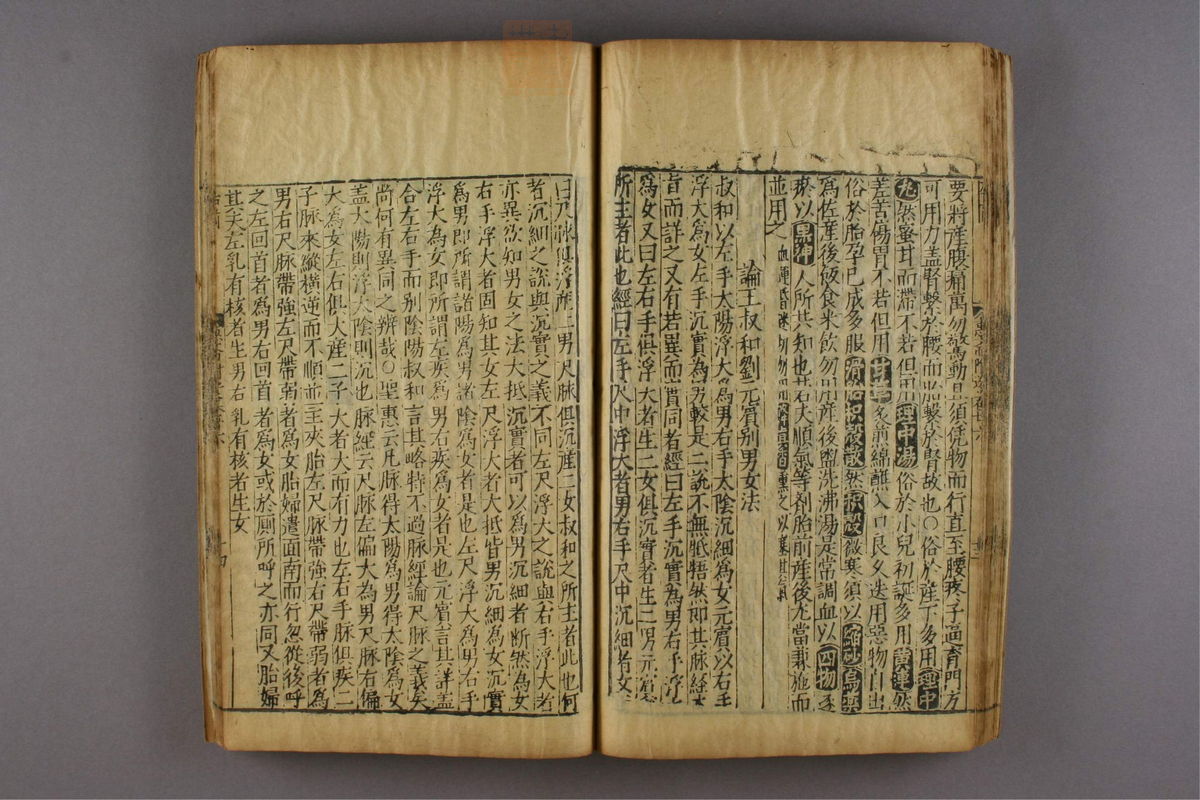 要將産腹痛萬勿驚動且須凭物而行直至腰疼子逼育門方
可用力盖腎繫於腰而胎繫於腎故也○俗於産下多用理中
丸然蜜甘而滯不若但用理中湯俗於小兒利誕多用黄連然
差苦傷胃不若但用甘草炙煎綿蘸入口良久迭用惡物自出
俗於胎孕已成多服滑胎枳殻散然枳殻微寒須以縮砂烏藥
爲佐産後飯食米飲勿用産後盥洗沸湯是常調血以四物逐
瘀以黒神人所共知也若夫順氣等剤胎前産後尤當兼施而
並用之
論王叔和劉元賓别男女法
叔和以左手太陽浮大爲男右手太陰沉細爲女元賓以右手
浮大爲女左手沉實為男較是二說不無牴牾然即其脉經本
㫖而詳之又有若異而實同者經曰左手沉實為男右手浮大
爲女又曰左右手俱浮大者生二女俱沉實者生二男元賓
所主者此也經曰左手尺中浮大者男右手尺中沉細者女
曰尺脉俱浮産二男尺脉俱沉産二女叔和之所主者此也何
者沉細之說與沉實之義不同左尺浮大之說與右手浮大者
亦異欲知男女之法大抵沉實者可以爲男沉細者断然為女
右手浮大者固知其女左尺浮大者大抵皆男沉細為女沉實
爲男即所謂諸陽爲男諸陰爲女者是也左尺浮大爲男右手
浮大為女即所謂左疾爲男右疾爲女者是也元賓言其詳蓋
合左右手而别陰陽叔和言其略特不過脉經論尺脉之義矣
尚何有異同之辨哉○聖惠云凡脉得太陽爲男得太陰爲女
盖太陽則浮大陰則沉也脉經云尺脉左偏大為男尺脉右偏
大為女左右俱大産二子大者大而有力也左右手脉俱疾二
子脉來縱横逆而不順並主夾胎左尺脉帶強右尺帶弱者爲
男右尺脉帶強左尺帶弱者為女胎婦遣面南而行忽從後呼
之左回首者爲男右回首者爲女或於厠所呼之亦同又胎婦
其夫左乳有核者生男右乳有核者生女